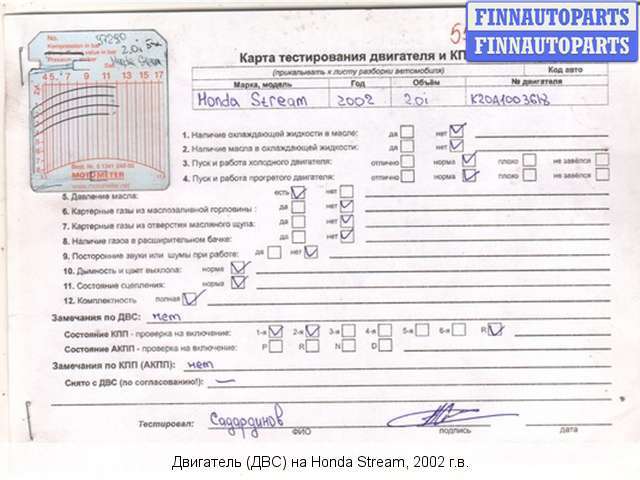 FINNAUTOPARTS
FINNAUTOPARTS
No. 47290
Kompression in bar
2.0i
Honda Stream
4 5 7 9 11 13 15 17
MOTOMETER
www.motometer.net
Карта тестирования двигателя и КП
(прикалывать к листу разборки автомобиля)
Код авто
Марка, модель Год Объём № двигателя
Honda Stream 2002 2.0i K20A1003618
1. Наличие охлаждающей жидкости в масле: да нет
2. Наличие масла в охлаждающей жидкости: да нет
3. Пуск и работа холодного двигателя: отлично норма плохо не завёлся
4. Пуск и работа прогретого двигателя: отлично норма плохо не завёлся
5. Давление масла: есть нет
6. Картерные газы из маслозаливной горловины : да нет
7. Картерные газы из отверстия масляного щупа: да нет
8. Наличие газов в расширительном бачке: да нет
9. Посторонние звуки или шумы при работе: да нет
10. Дымность и цвет выхлопа: норма
11. Состояние сцепления: норма
12. Комплектность полная
Замечания по ДВС: нет
Состояние КПП - проверка на включение: 1-я 2-я 3-я 4-я 5-я 6-я R
Состояние АКПП - проверка на включение: P R N D
Замечания по КПП (АКПП): нет
Снято с ДВС (по согласованию!): —
Тестировал: Садардинов
ФИО подпись дата
Двигатель (ДВС) на Honda Stream, 2002 г.в.